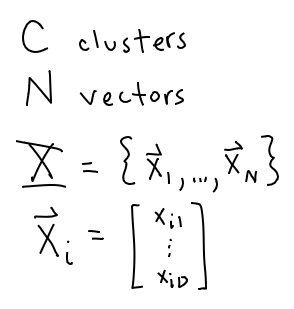 C clusters
N vectors
X = {x⃗₁,...,x⃗_N}
x⃗ᵢ = [x_{i1} ⋮ x_{iD}]